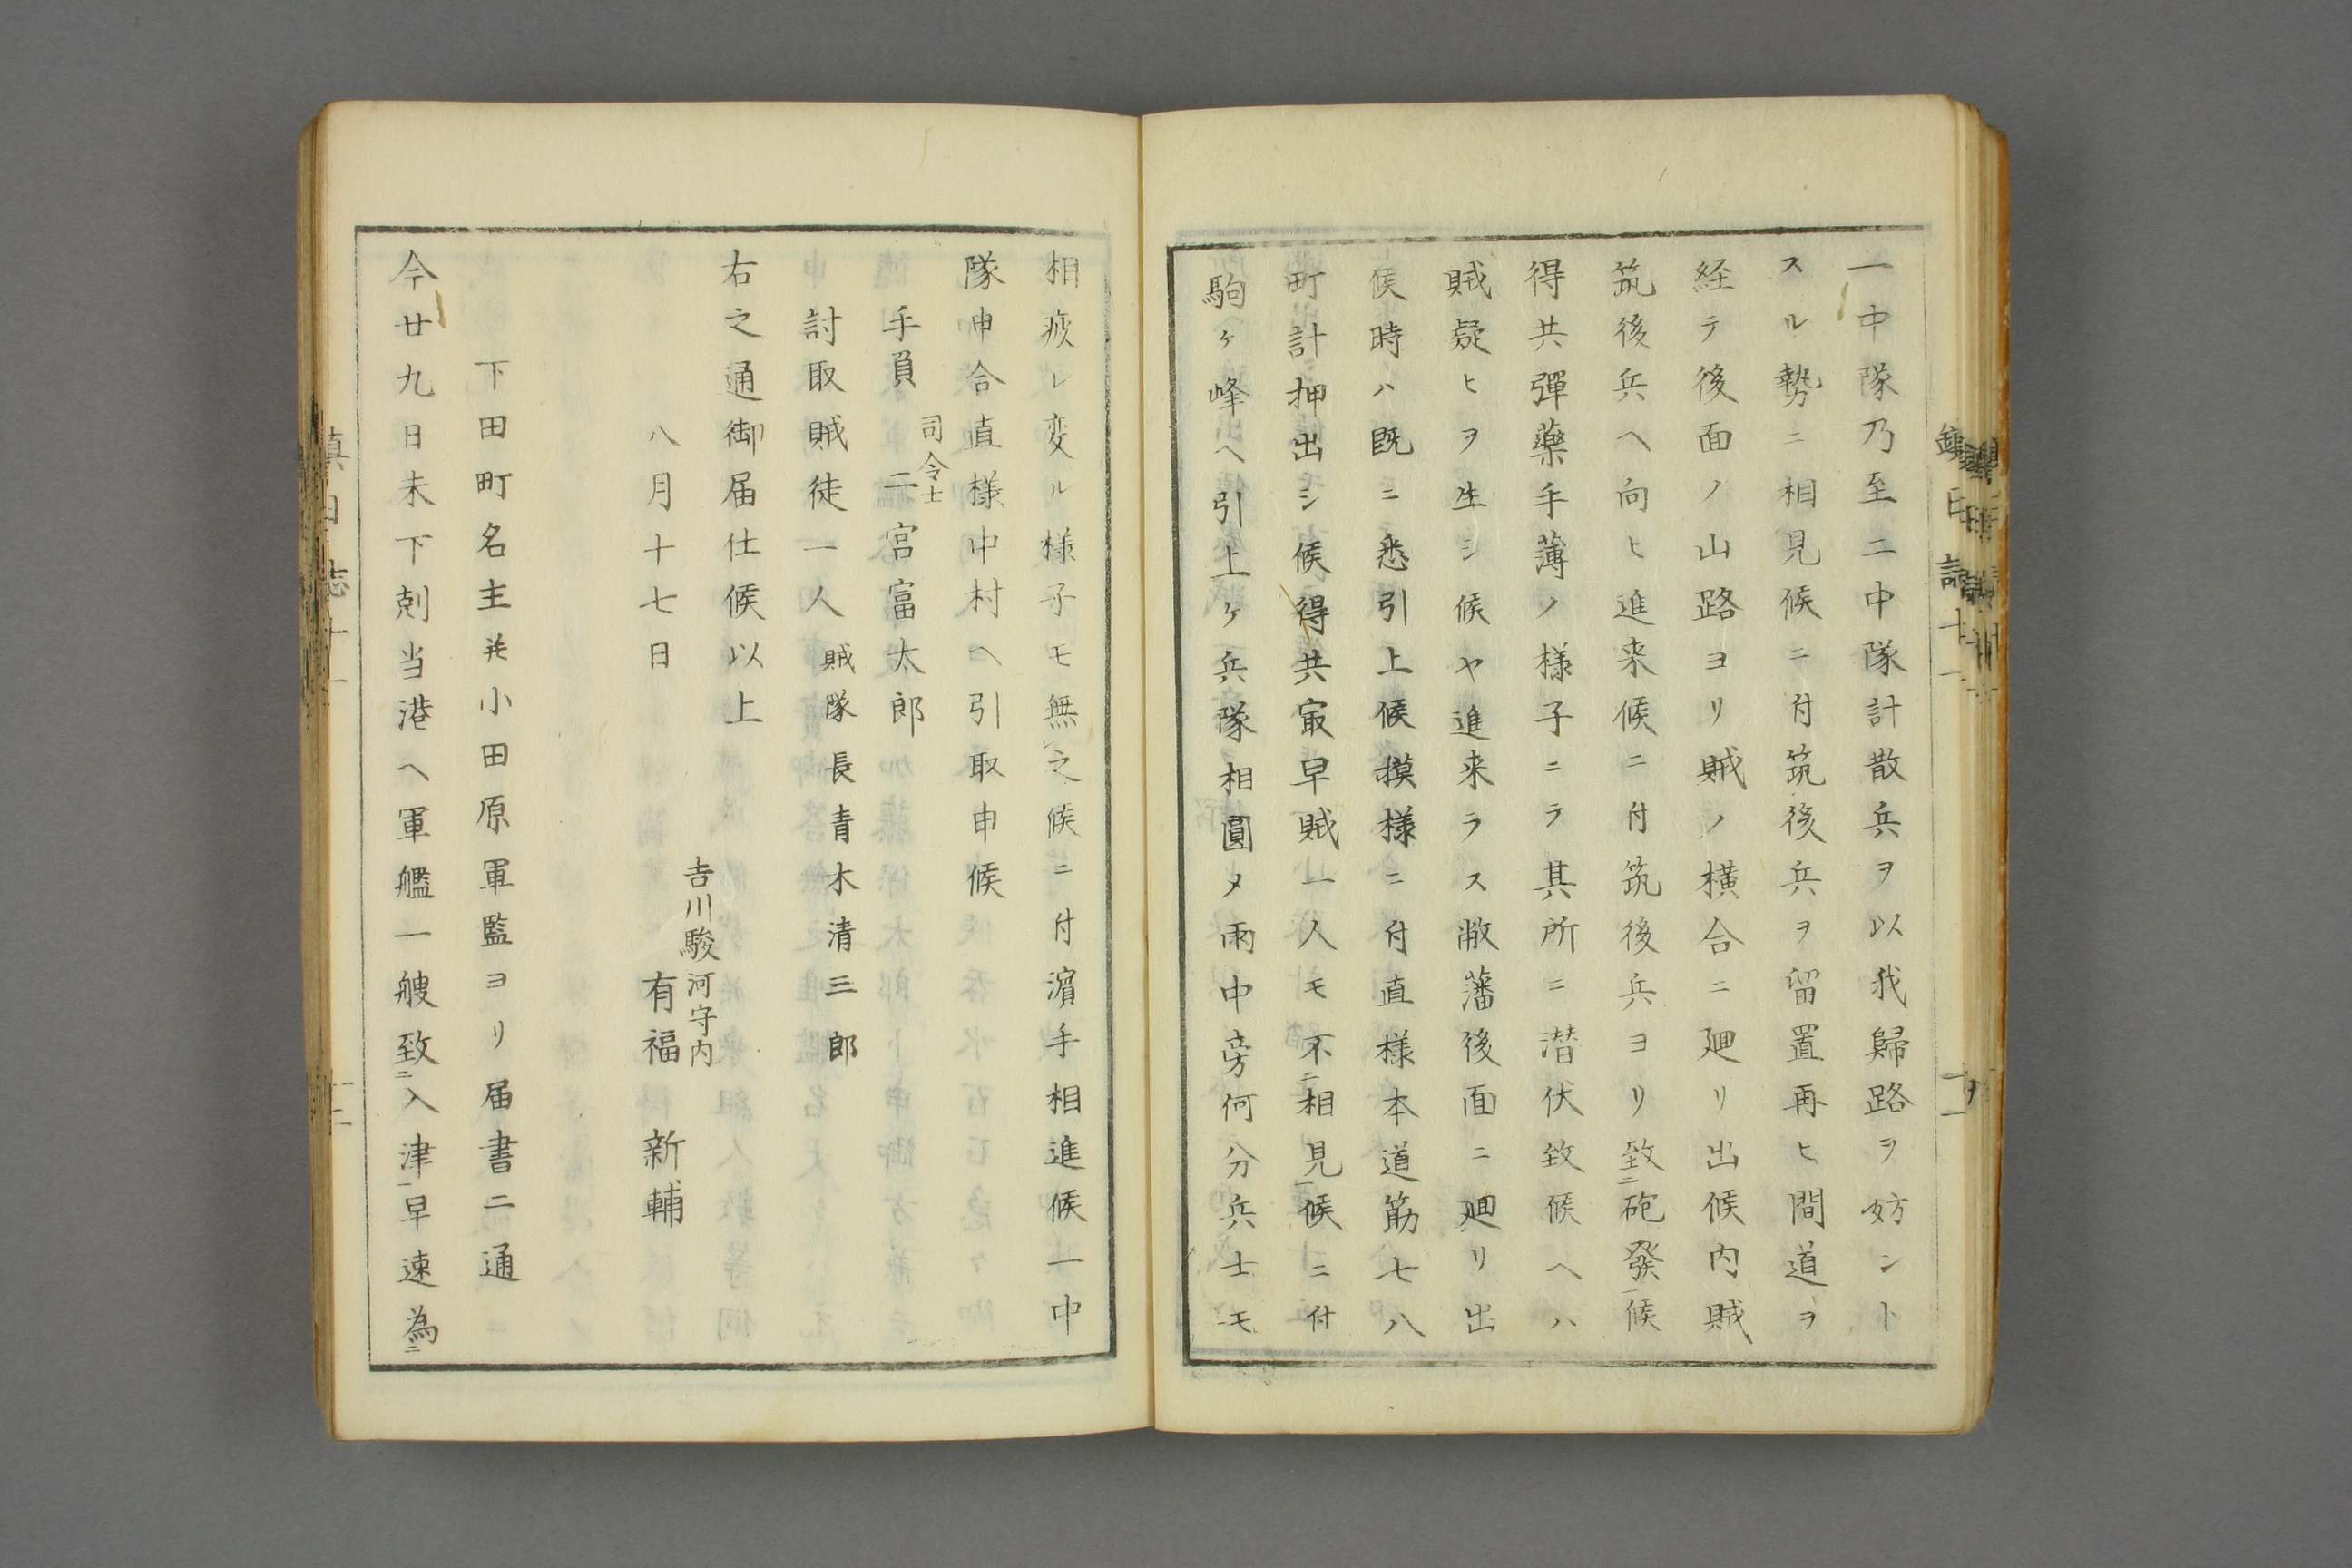 一中隊乃至二中隊計散兵ヲ以我歸路ヲ妨ント
スル勢ニ相見候ニ付筑後兵ヲ留置再ヒ間道ヲ
経テ後面ノ山路ヨリ賊ノ横合ニ廻リ出候内賊
筑後兵ヘ向ヒ進来候ニ付筑後兵ヨリ致二砲發一候
得共彈藥手薄ノ様子ニテ其所ニ潜伏致候ヘハ
賊疑ヒヲ生シ候ヤ進来ラス敝藩後面ニ廻リ出
候時ハ既ニ悉引上候摸様ニ付直様本道筋七八
町計押出シ候得共㝡早賊一人モ不二相見一候ニ付
駒ケ峰ヘ引上ケ兵隊相圓メ雨中旁何分兵士モ
相疲レ変ル様子モ無之候ニ付濵手相進候一中
隊申合直様中村ヘ引取申候
手負 司令士 二宮富太郎
討取賊徒一人 賊隊長青木清三郎
右之通御届仕候以上
八月十七日
吉川駿河守内
有福 新輔
下田町名主幷小田原軍監ヨリ届書二通
今廿九日未下剋当港ヘ軍艦一艘致二入津一早速為二